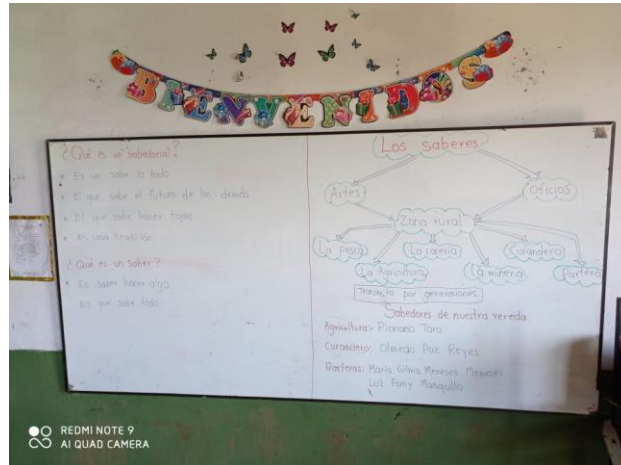 BIENVENIDOS
¿Qué es un sabedor?
Es un sabe lo todo
El que sabe el futuro de los demás
El que sabe hacer todo
Es una tradición
¿Qué es un saber?
Es saber hacer algo
Es que sabe todo
Los saberes
Artes
Oficios
Zona rural
La pesca
La caceria
Curandero
La Agricultura
La mineria
Partera
por generaciones
Sabedores de nuestra vereda
Agricultura: Pionono Toro
Curandero: Olmedo Paz Reyes
Parteras: Maria Meneses Meneses
Luz Fany Manquillo
REDMI NOTE 9
AI QUAD CAMERA